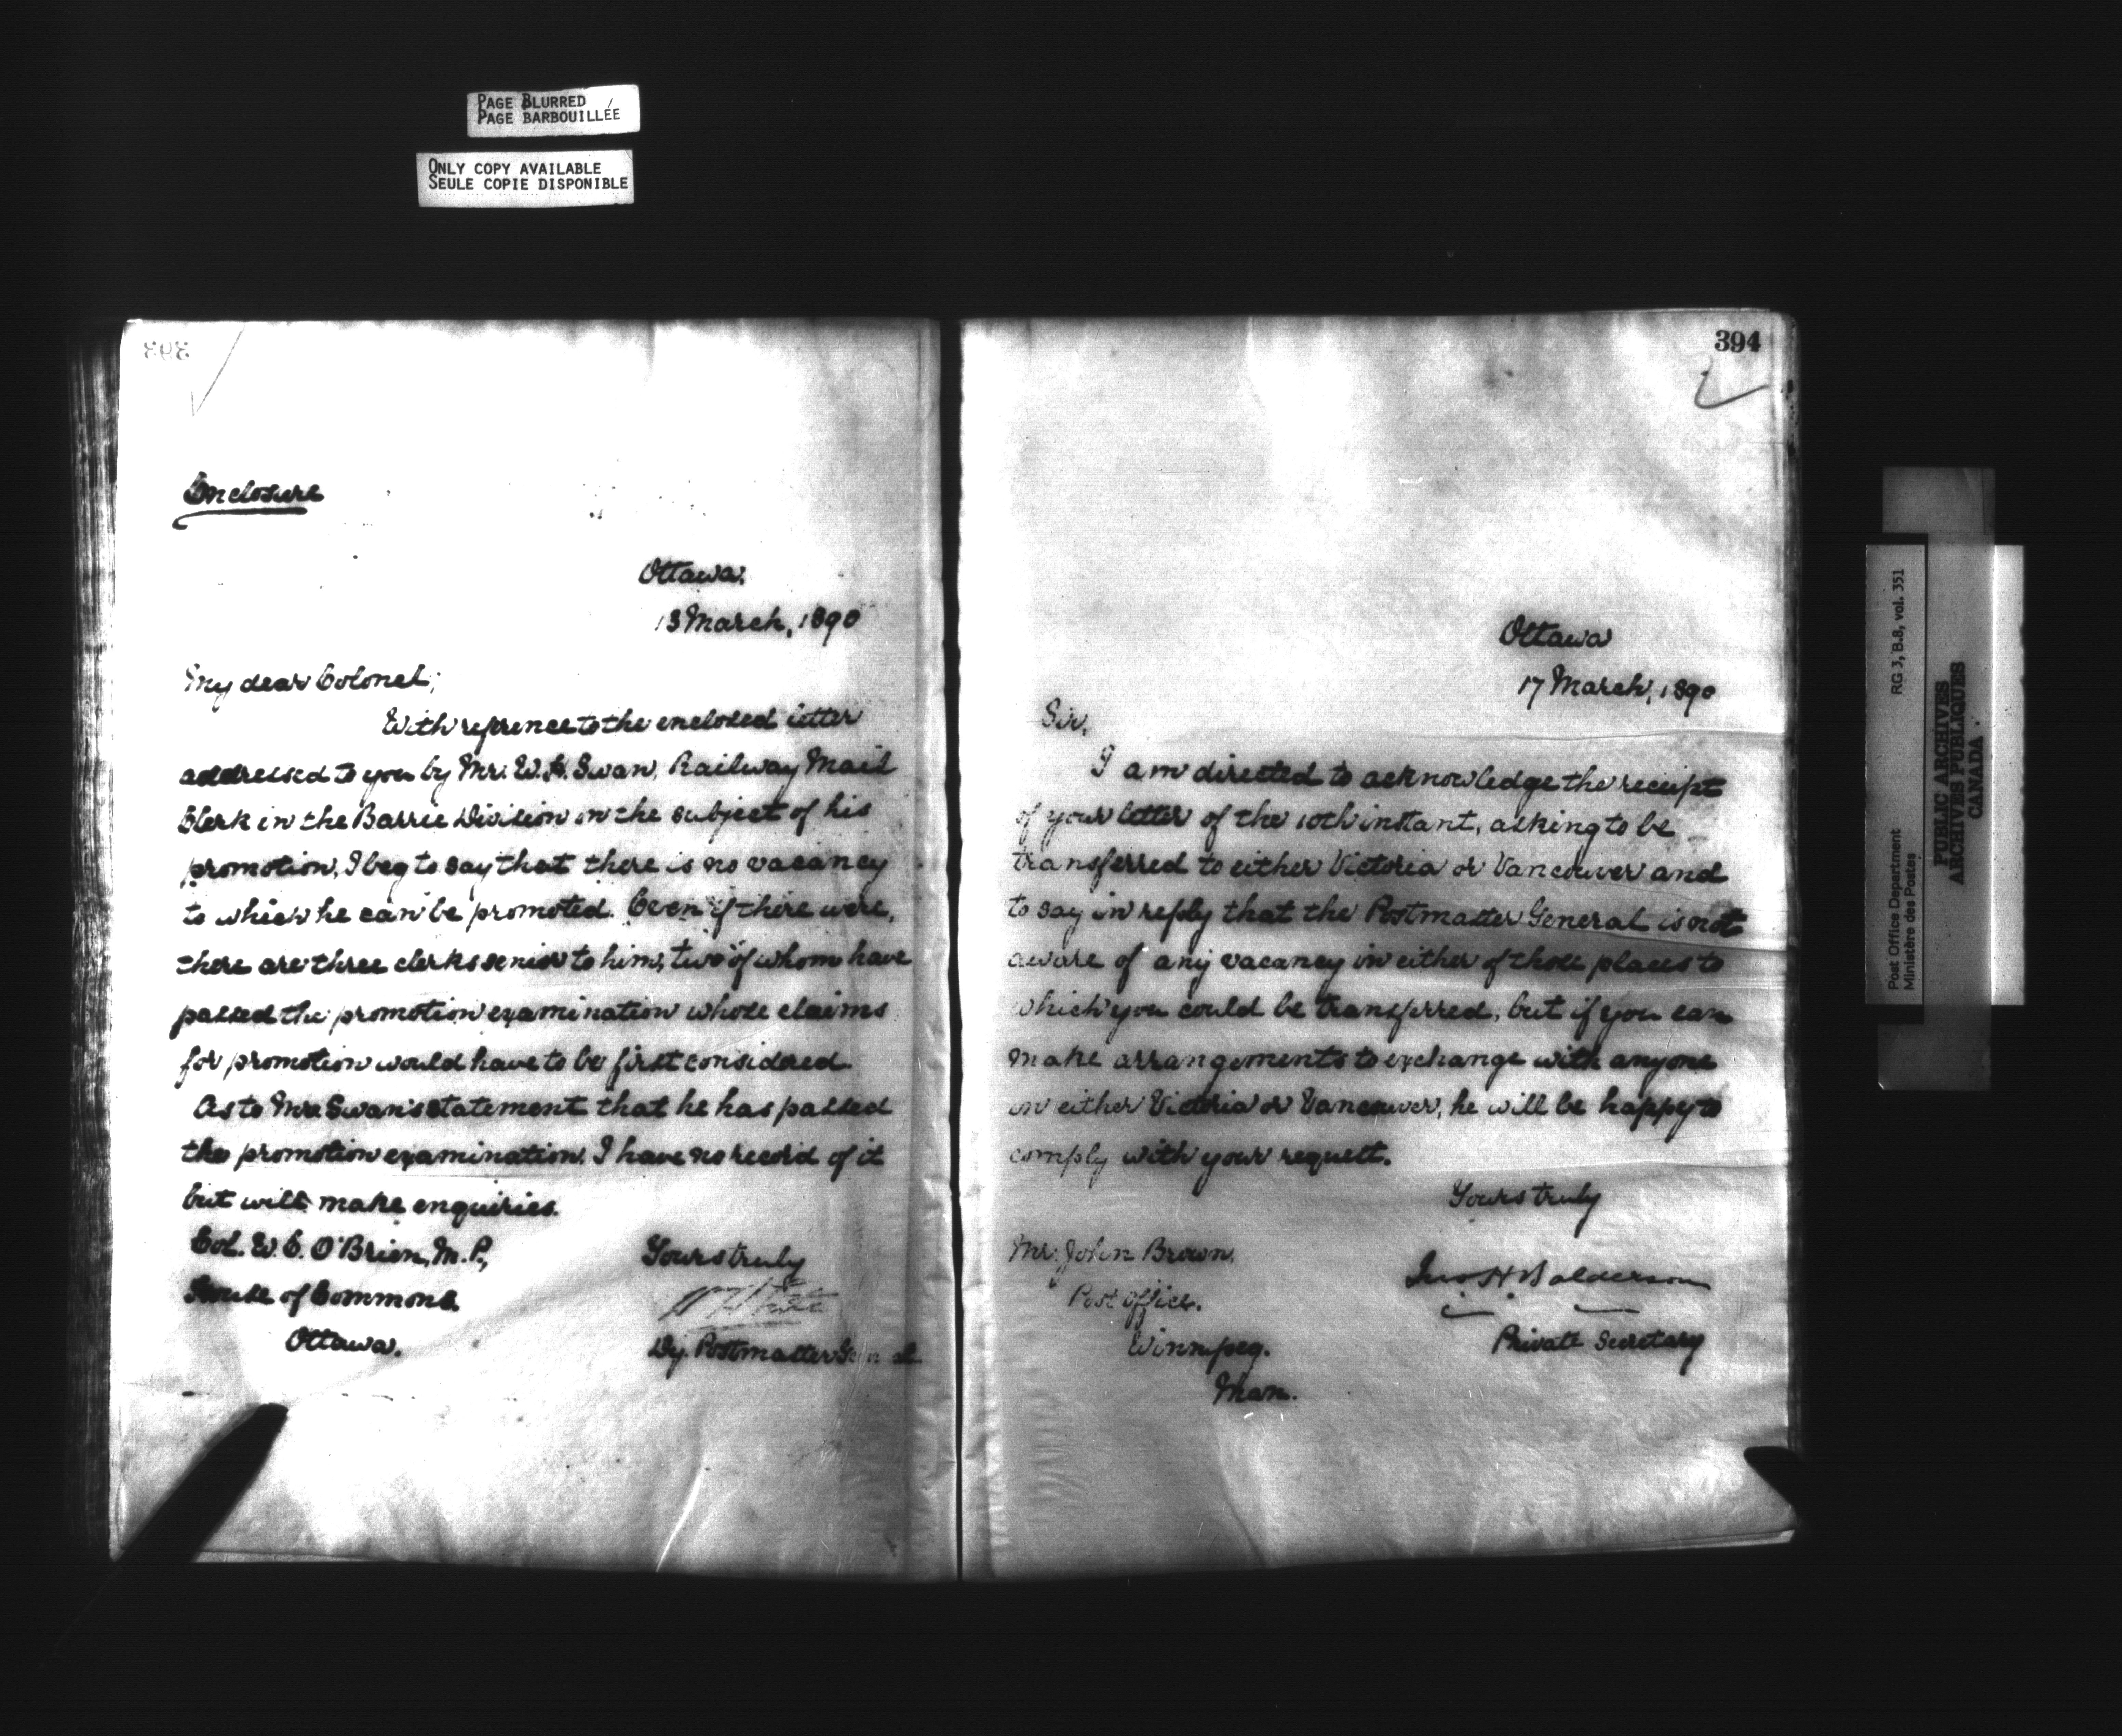 PAGE BLURRED
PAGE BARBOUILLÉE
ONLY COPY AVAILABLE
SEULE COPIE DISPONIBLE
393
Enclosure
Ottawa.
13 March, 1890
My dear Colonel;
With refrence to the enclosed letter
addressed to you by Mr. W. H. Swan, Railway Mail
Clerk in the Barrie Division on the subject of his
promotion, I beg to say that there is no vacancy
to which he can be promoted. Even if there were,
there are three clerks senior to him, two of whom have
passed the promotion examination whose claims
for promotion would have to be first considered.
As to Mr. Swan's statement that he has passed
the promotion examination. I have no record of it
but will make enquiries.
Col. W. E. O'Brien, M. P.,
House of Commons.
Ottawa.
Yours truly
Dy. Postmaster General
394
Ottawa
17 March, 1890
Sir,
I am directed to acknowledge the receipt
of your letter of the 10th instant, asking to be
transferred to either Victoria or Vancouver and
to say in reply that the Postmaster General is not
aware of any vacancy in either of those places to
which you could be transferred, but if you can
make arrangements to exchange with anyone
in either Victoria or Vancouver, he will be happy to
comply with your request.
Yours truly
Jno H Balderson
Private Secretary
Mr. John Brown,
Post Office.
Winnipeg.
Man.
Post Office Department RG 3, B.8, vol. 351
Ministère des Postes
PUBLIC ARCHIVES
ARCHIVES PUBLIQUES
CANADA